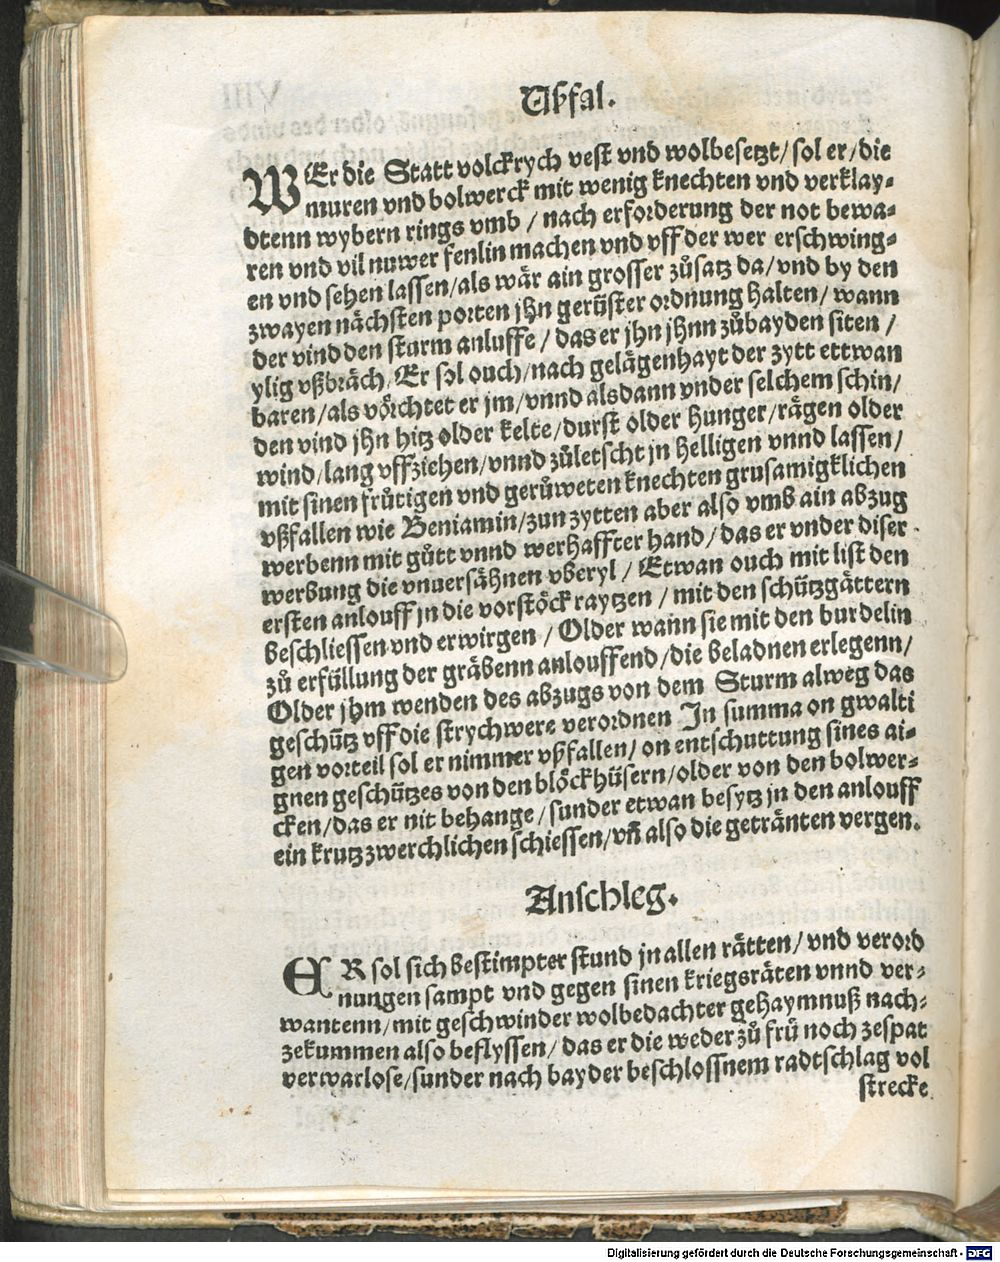 Vßfal.
WEr die Statt volckrych vest vnd wolbesetzt/ sol er/die
muren vnd bolwerck mit wenig knechten vnd verklay-
dtenn wybern rings vmb / nach erforderung der not bewa-
ren vnd vil nuwer fenlin machen vnd vff der wer erschwing-
en vnd sehen lassen/als wår ain grosser zůsatz da/vnd by den
zwayen nåchsten porten jhn gerüster ordnung halten/ wann
der vind den sturm anluffe / das er jhn jhnn zůbayden siten /
ylig vßbråch/ Er sol ouch/nach gelågenhayt der zytt ettwan
baren/als vörchtet er jm/vnnd alsdann vnder selchem schin/
den vind jhn hitz older kelte/durst older hunger/rågen older
wind/lang vffziehen/vnnd zůletscht jn helligen vnnd lassen/
mit sinen frůtigen vnd gerůweten knechten grusamigklichen
vßfallen wie Beniamin/zun zytten aber also vmb ain abzug
werbenn mit gůtt vnnd werhaffter hand/das er vnder diser
werbung die vnuersåhnen vberyl / Etwan ouch mit list den
ersten anlouff jn die vorstöck raytzen / mit den schützgåttern
beschliessen vnd erwirgen / Older wann sie mit den burdelin
zů erfüllung der gråbenn anlouffend/die beladnen erlegenn/
Older jhm wenden des abzugs von dem Sturm alweg das
geschütz vff die strychwere verordnen In summa on gwalti
gen vorteil sol er nimmer vßfallen/ on entschuttung sines ai-
gnen geschützes von den blöckhüsern/older von den bolwer-
cken/das er nit behange/sunder etwan besytz jn den anlouff
ein krutz zwerchlichen schiessen/vn̄ also die getrånten vergen.
Anschleg.
ER sol sich bestimpter stund jn allenråtten/ vnd verord
nungen sampt vnd gegen sinen kriegsråten vnnd ver-
wantenn/mit geschwinder wolbedachter gehaymnuß nach-
zekummen also beflyssen/das er die weder zů frü noch zespat
verwarlose/sunder nach bayder beschlossnem radtschlag vol
strecke
Digitalisierung gefördert durch die Deutsche Forschungsgemeinschaft - DFG